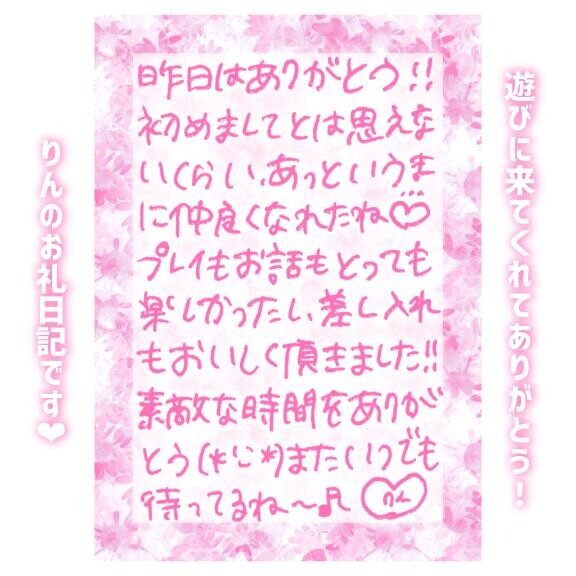 遊びに来てくれてありがとう！
昨日はありがとう!!
初めましてとは思えな
いくらい、あっというま
に仲良くなれたね♡
プレイもお話もとっても
楽しかったし、差し入れ
もおいしく頂きました!!
素敵な時間をありが
とう(*ˊᵕˋ*)またいつでも
待ってるね〜♪
りん
りんのお礼日記です❤